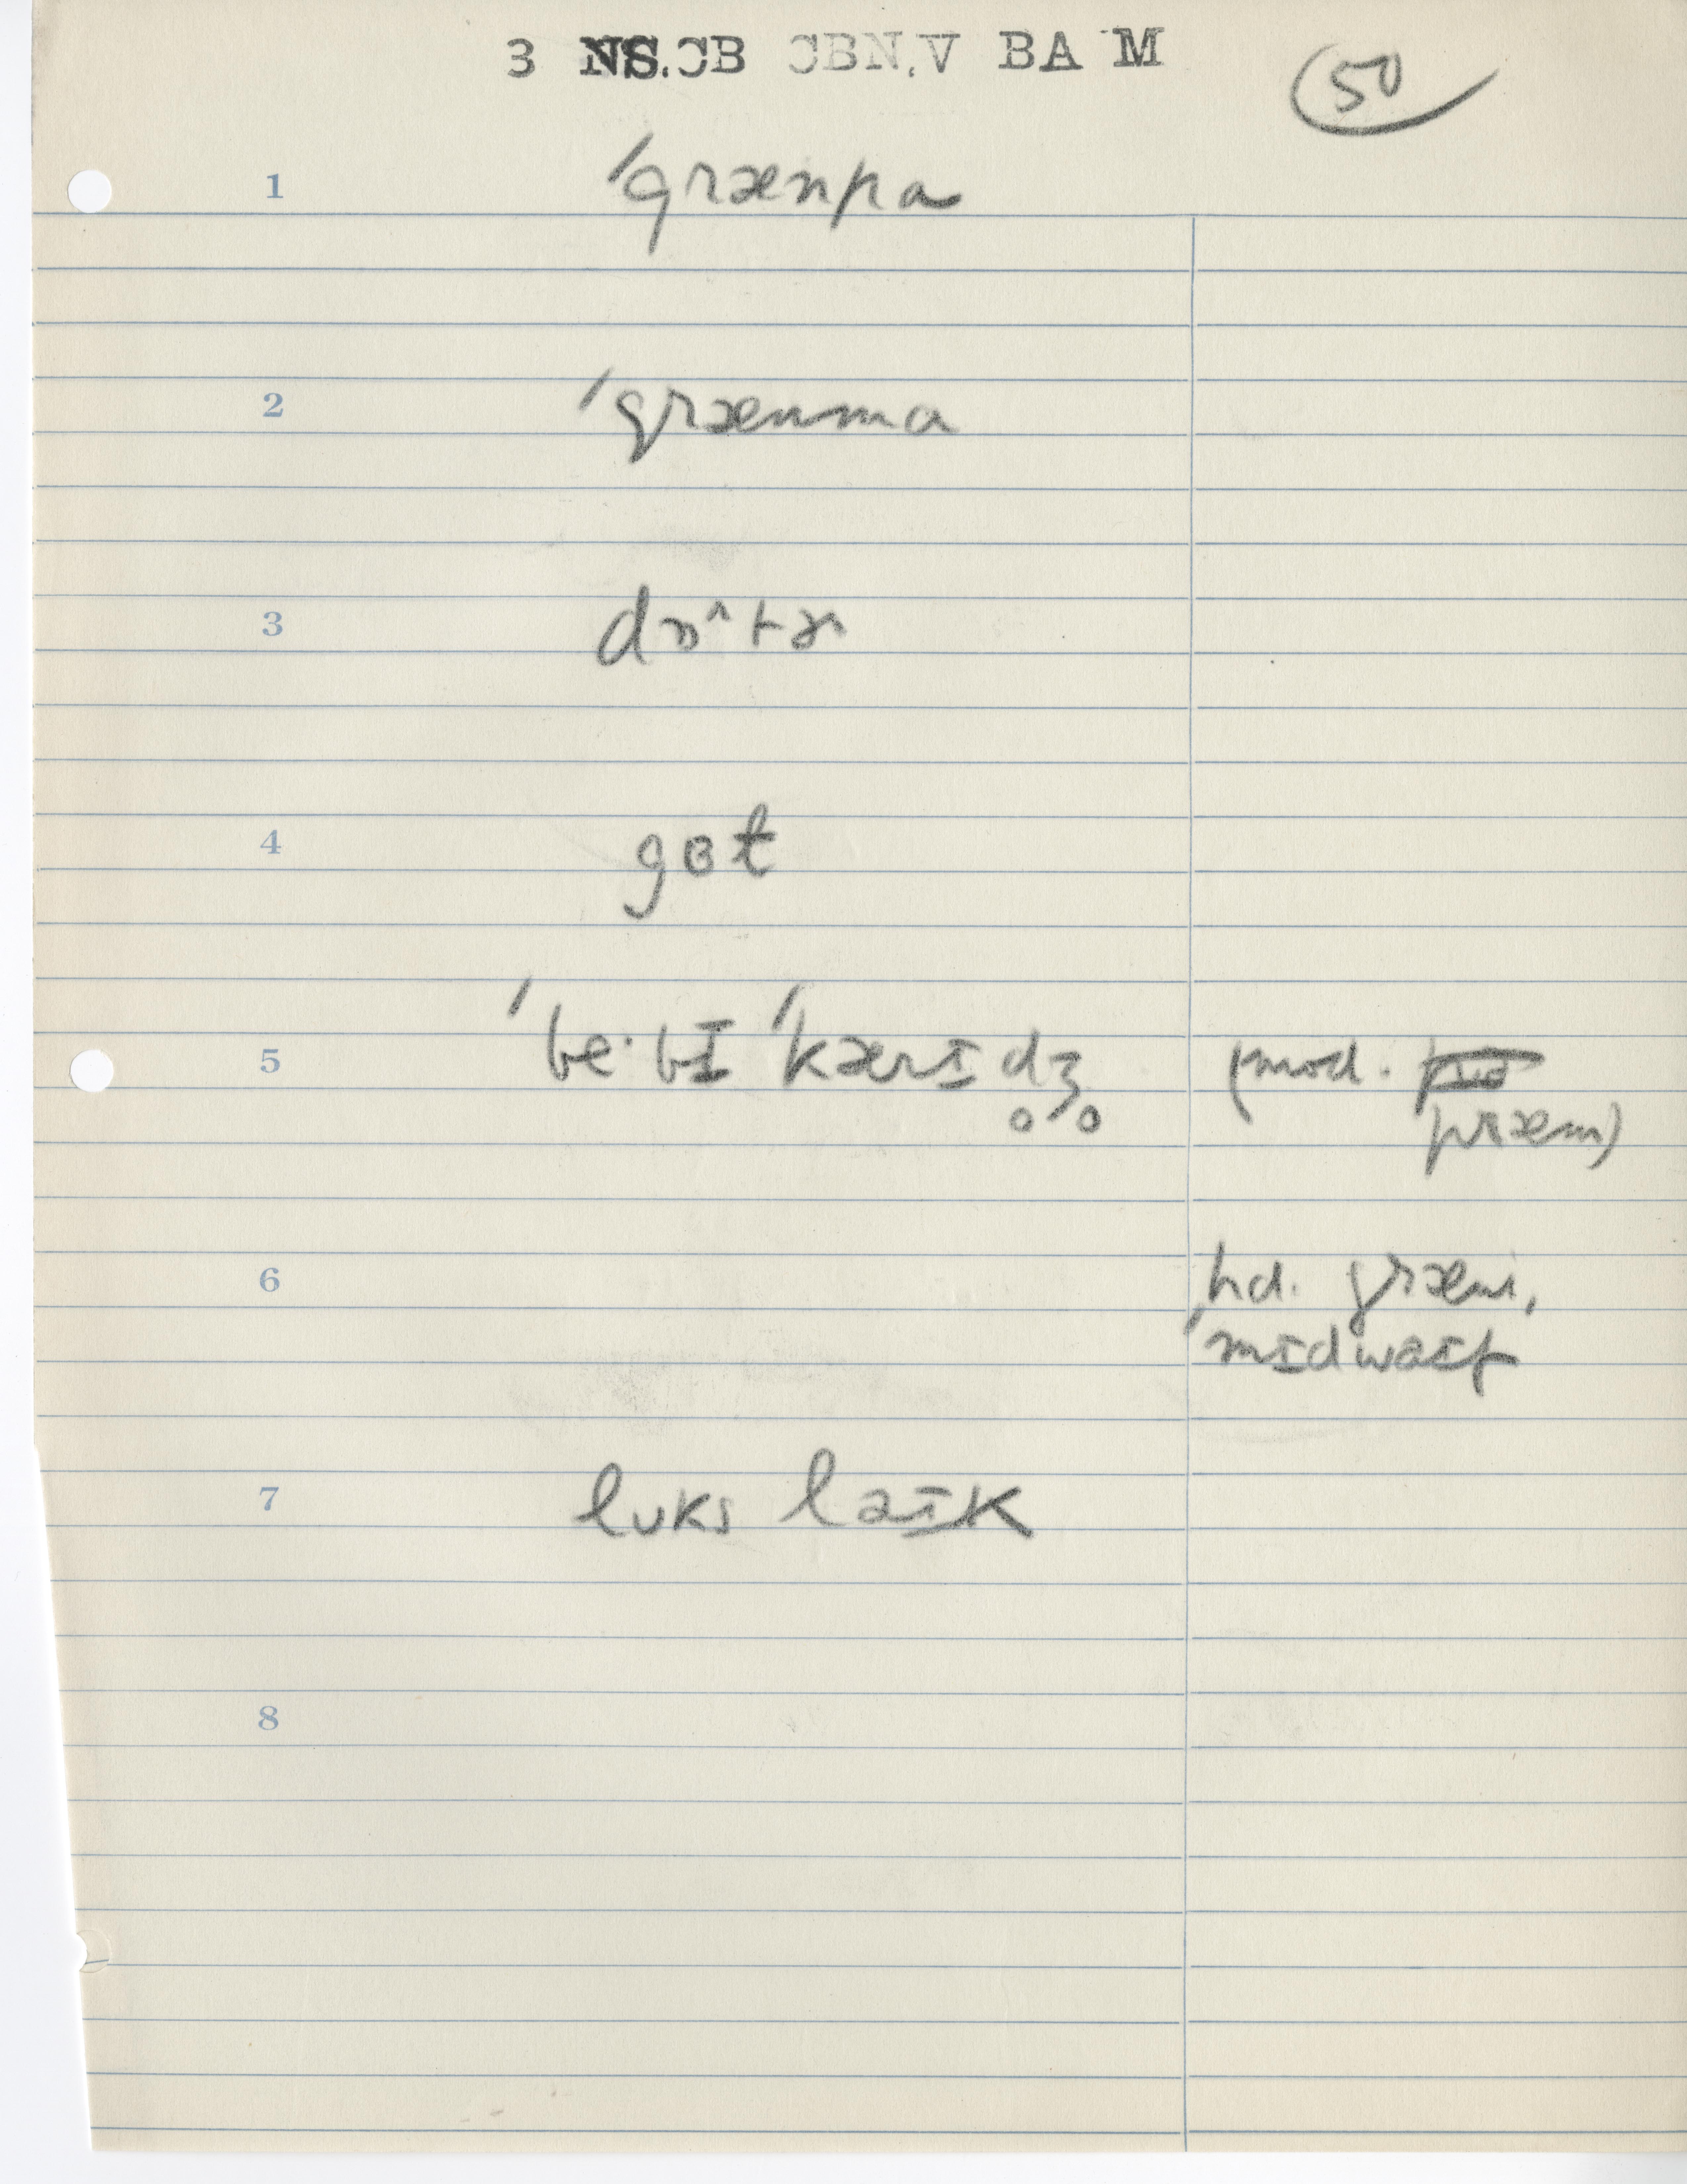 3 NS.CB CBN.V BA M
50
1 ˈgrænpa
2 ˈgrænma
3 dɒ^tɚ
4 gɵt
5 ˈbe·bɪ ˈkærɪd̥ʒ̥ (mod.
præm)
6 hd. græni,
ˈmɪdwaɪf
7 lʊks laɪk
8